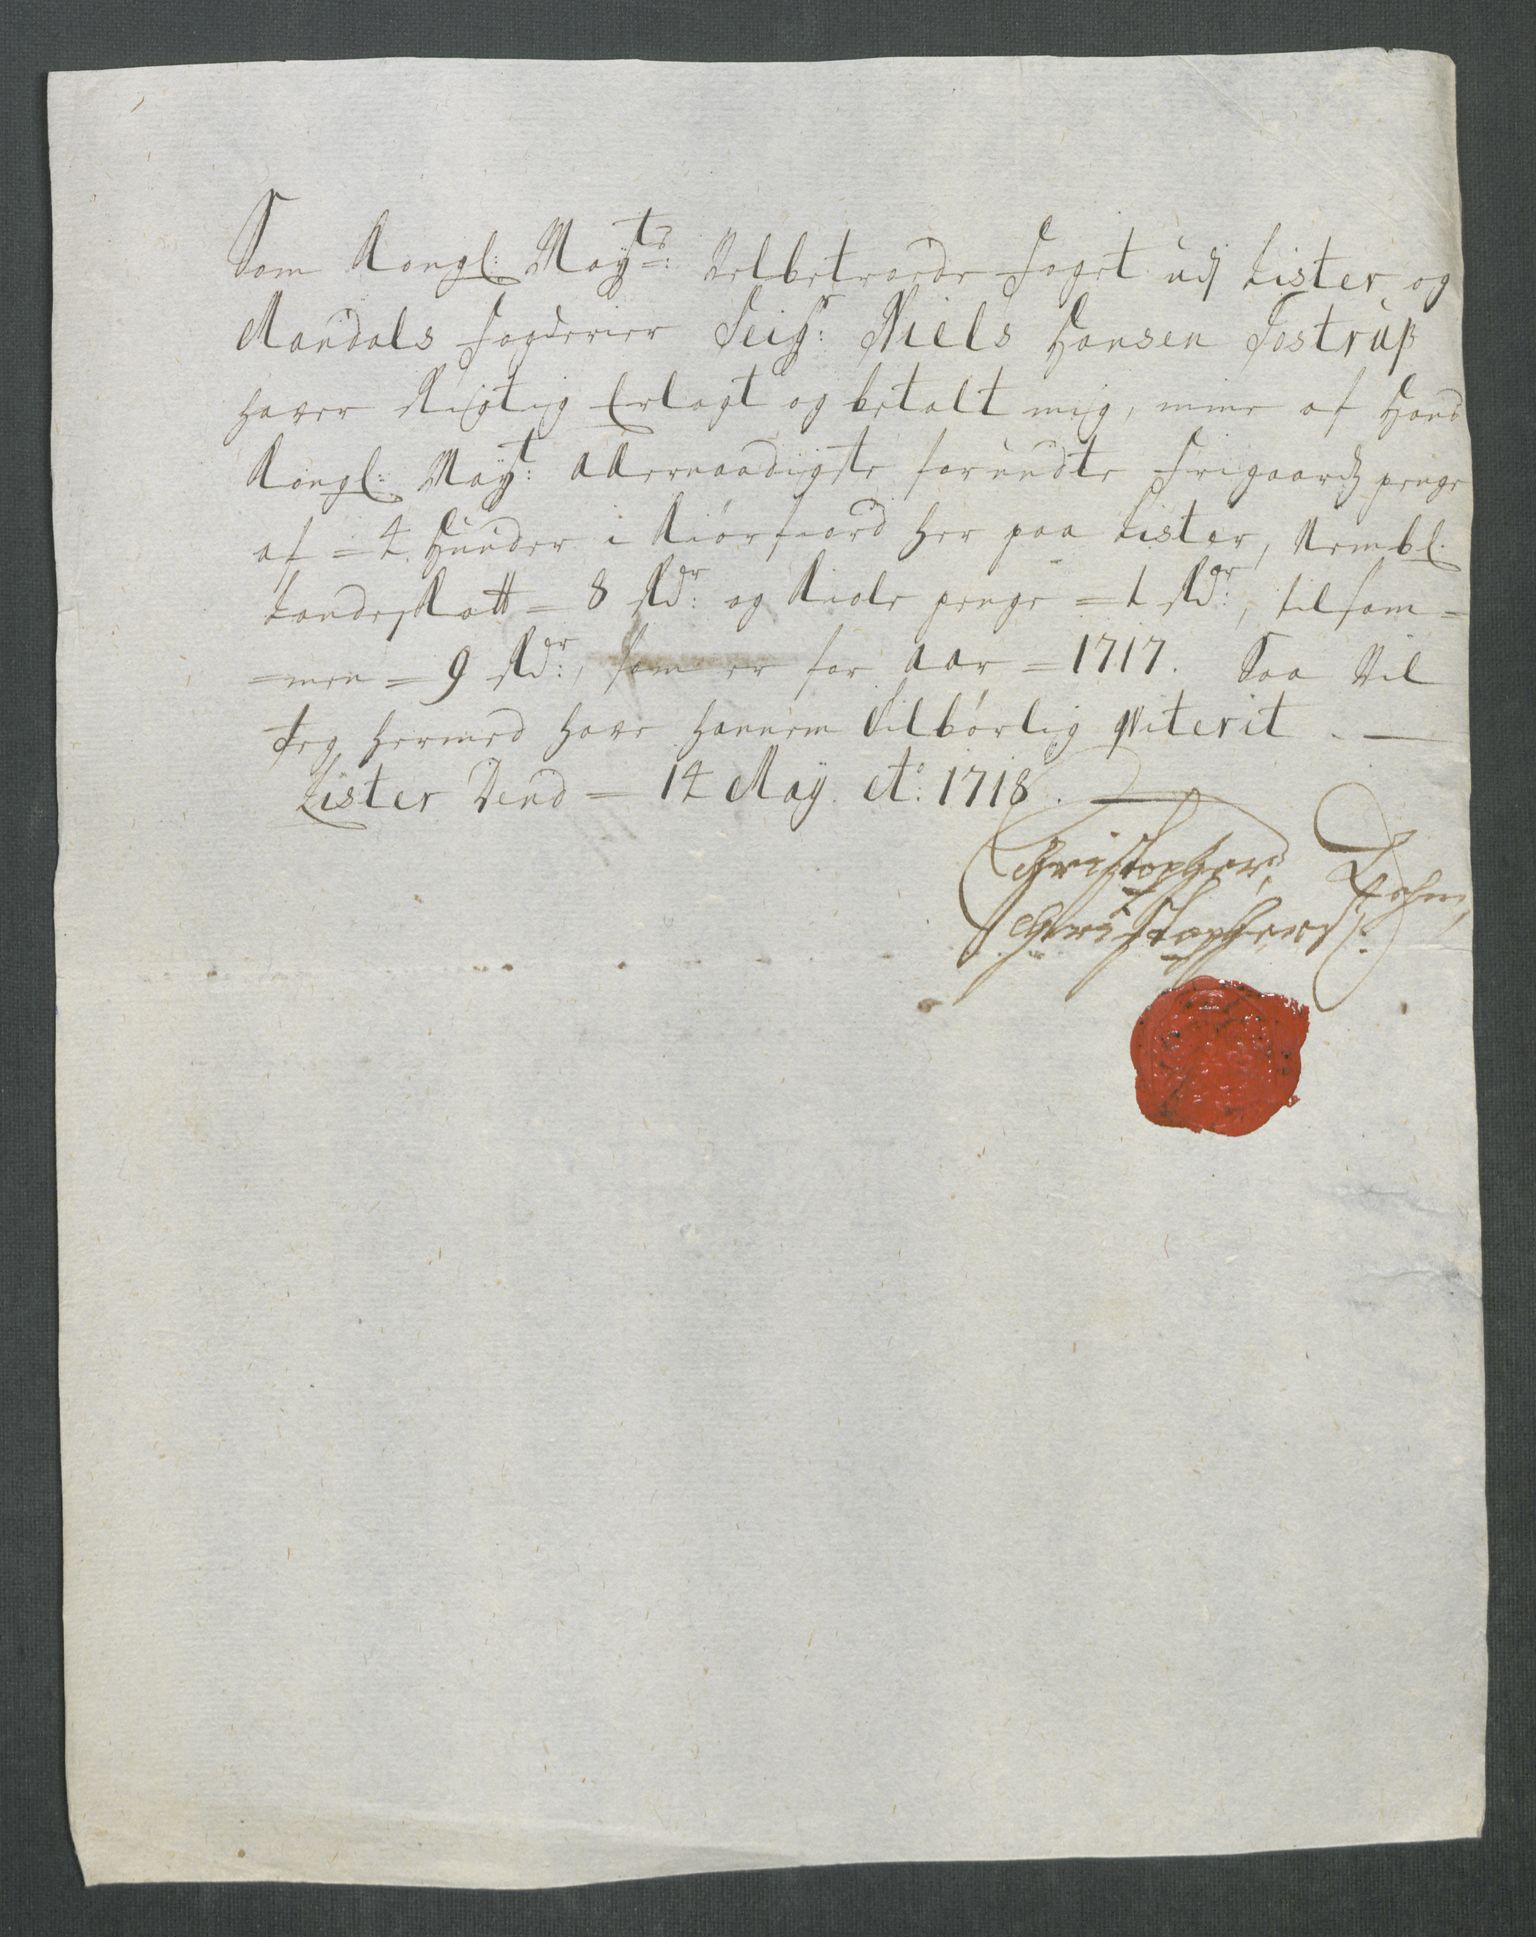 Som Kongl: Mayts: Velbetroede Foget udj Lister og
Mandals Fogderier Seigr: Niels Hansen Tostrup
haver Rigtig Erlagt og betalt mig, mine af Hans
Kongl: Mayt: Allernaadigste forundte Frigaards penge
af = 4 Hunder i Kiørfiord her paa Lister, Nembl:
Landskatt = 8 Rdr: og Riole penge = 1 Rdr:, tilsam=
=men = 9 Rdr:, som er for Aar = 1717. Saa Vil
Jeg hermed have hannem tilbørlig qviterit . —
Lister Dend = 14 May Ao: 1718 . —
Christopher
Christophers: